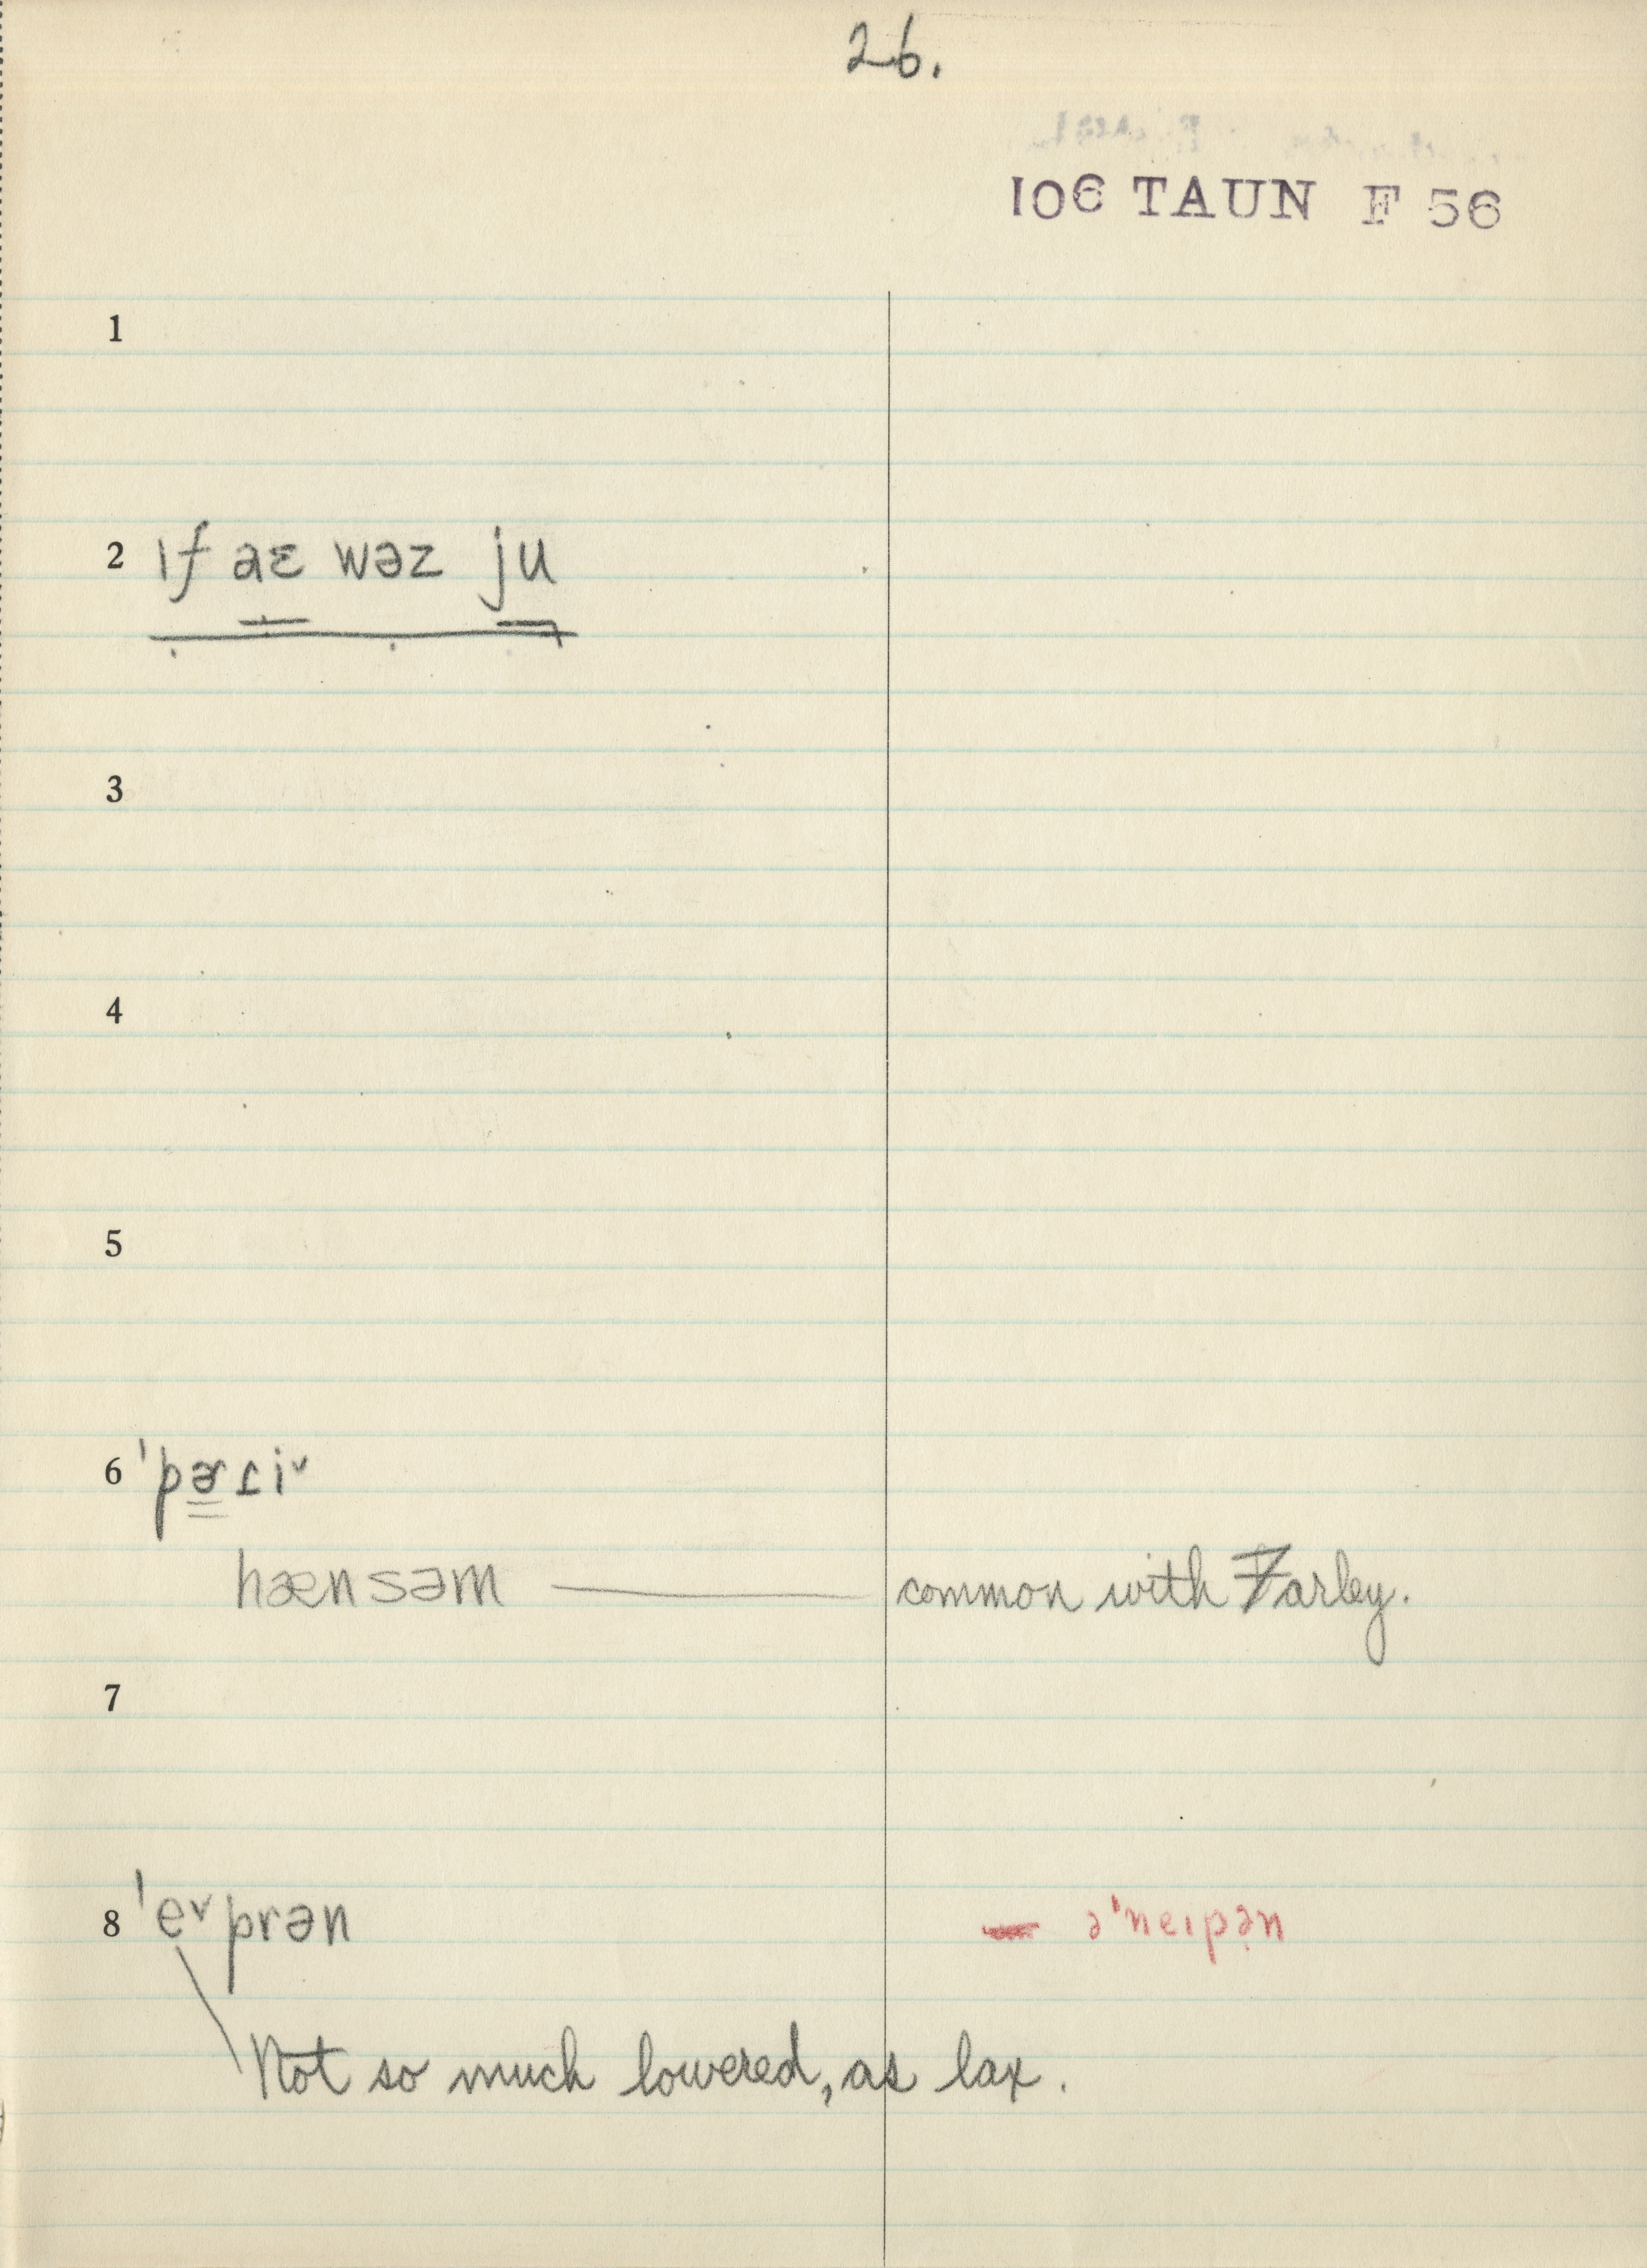 26.
106 TAUN F 56
1
2 ɪf aɛ wəz ju
3
4
5
6 ˈpɚɾi˅
hænsəm — common with Farley.
7
8 ˈe˅prən — əˈneɪpə̣n
Not so much lowered, as lax.